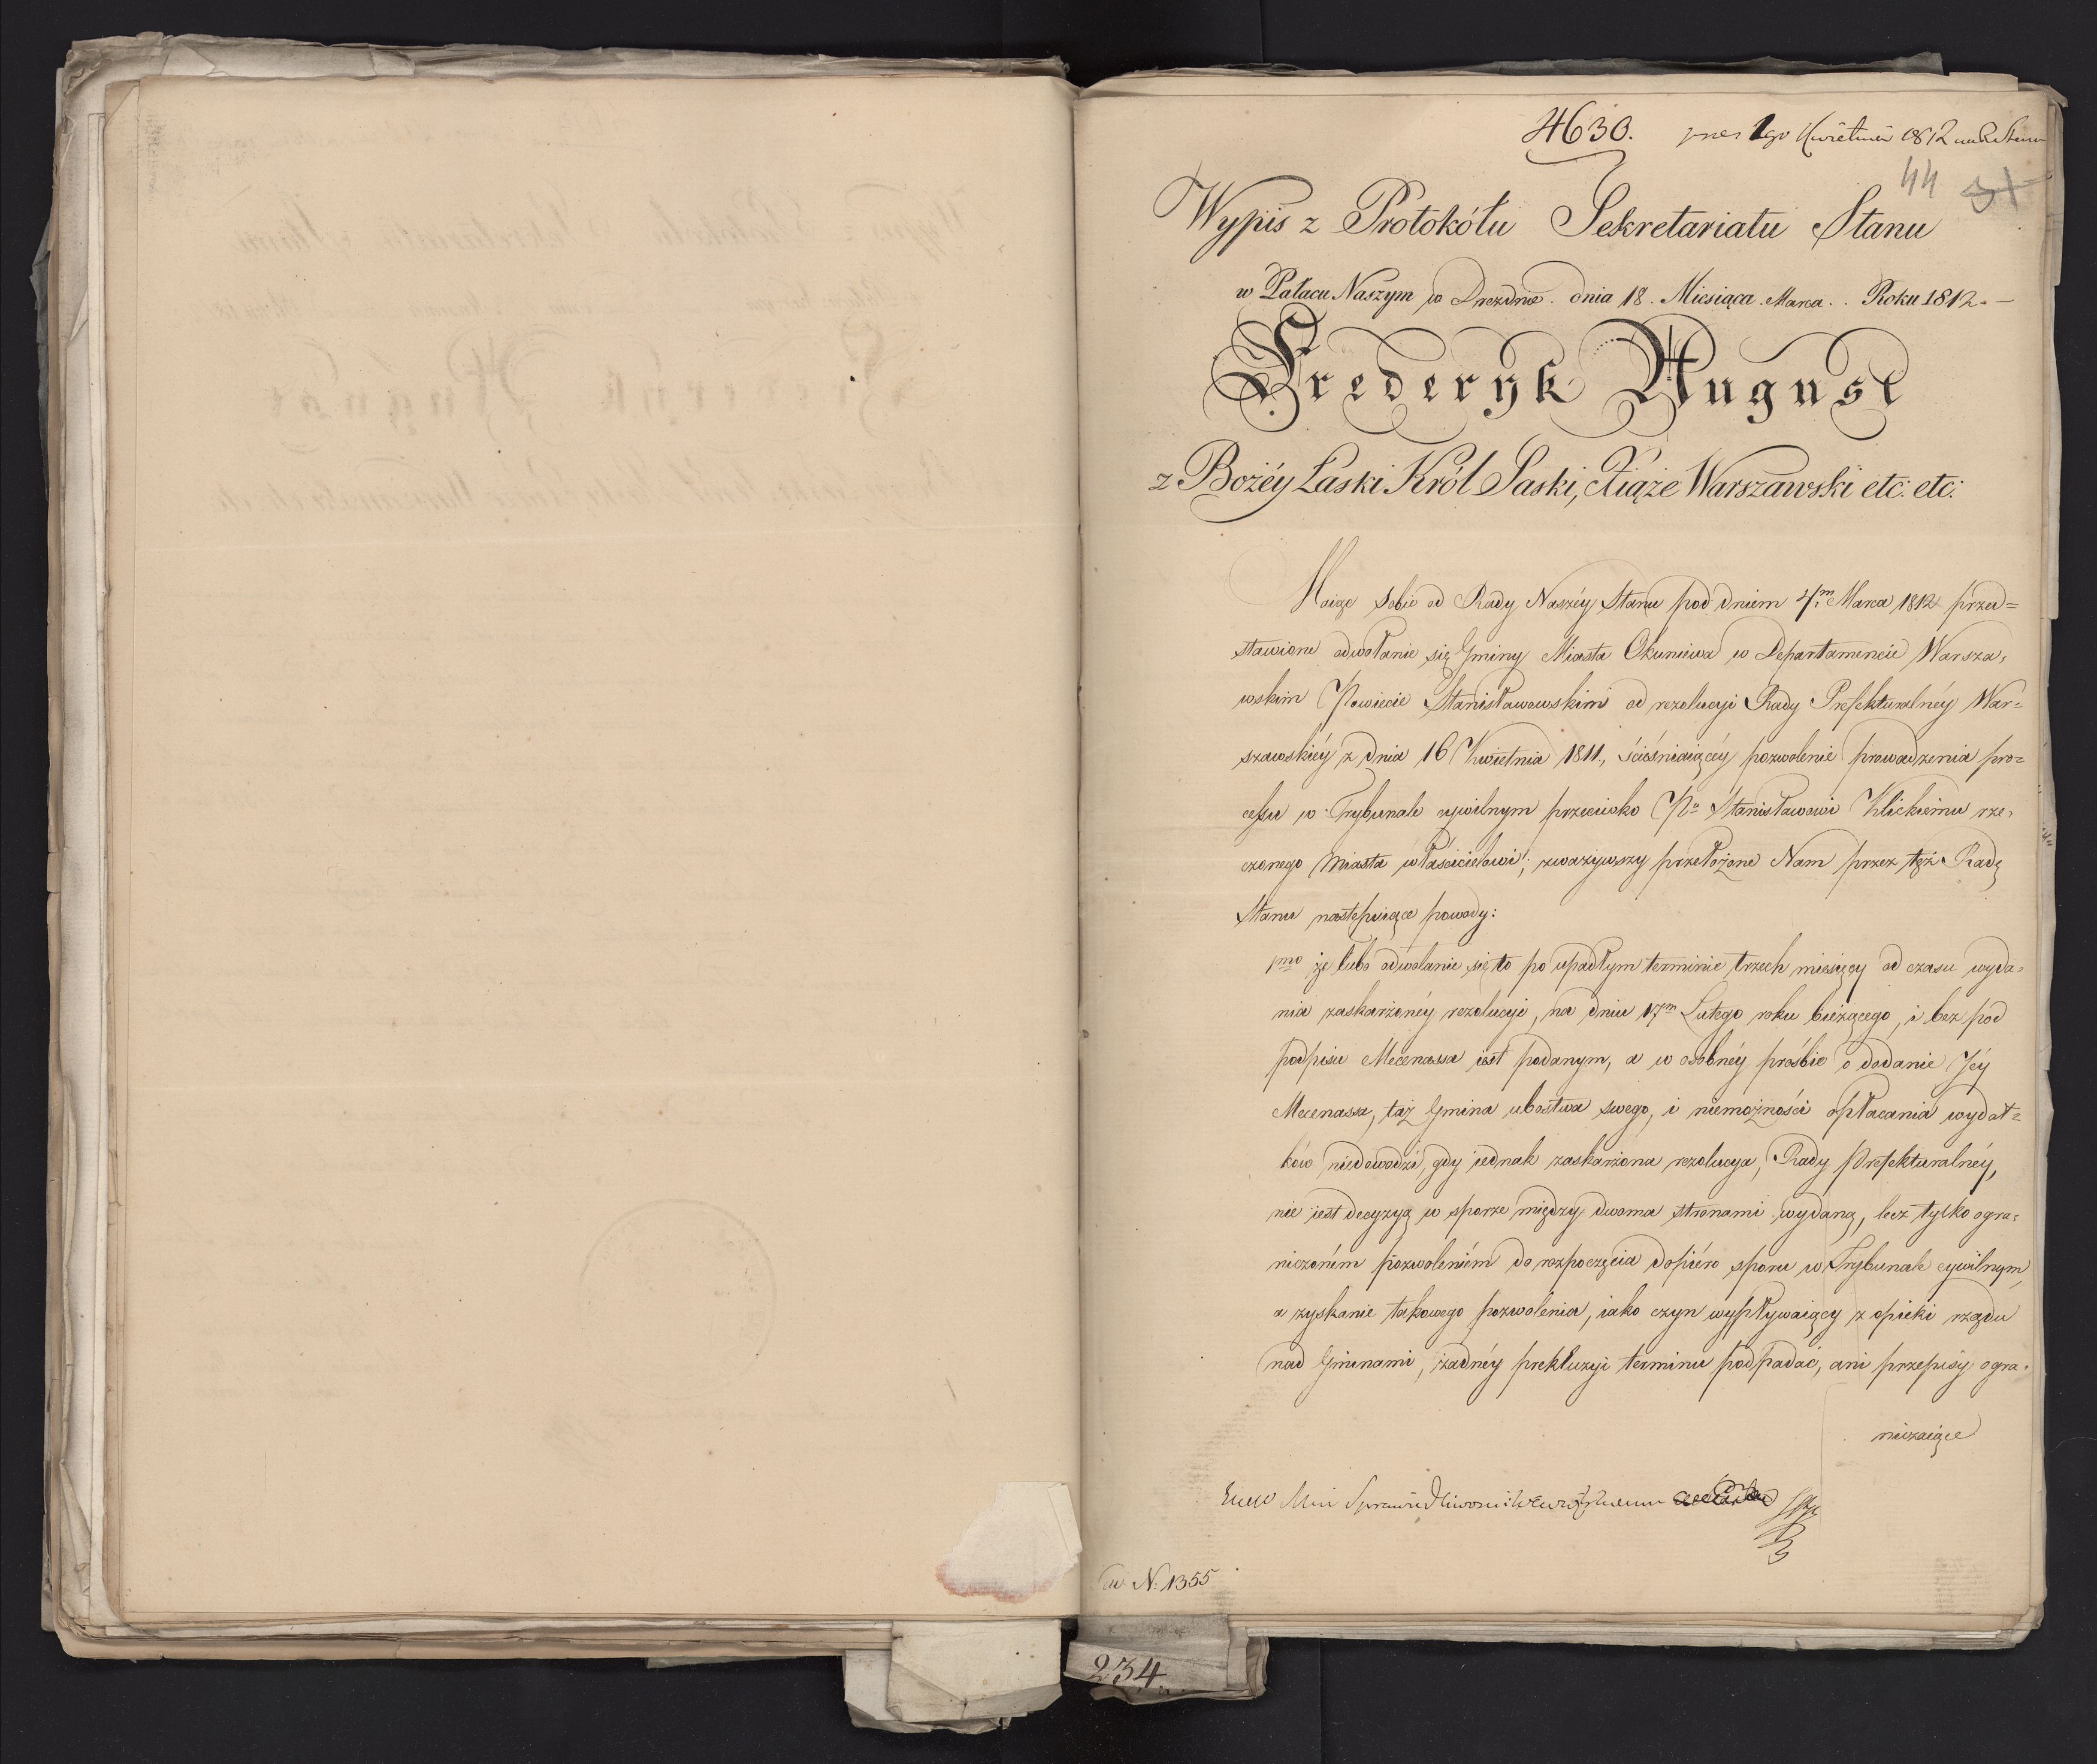 4630. 1go Kwietnia 1812
44 31
Wypis z Protokółu Sekretariatu Stanu
w Pałacu Naszym w Dreznie. dnia 18. Miesiąca Marca. Roku 1812.
Frederyk August
z Bożéy Łaski Król Saski, Xiąże Warszawski etc: etc:
Maiąc sobie od Rady Naszéy Stanu pod dniem 4m Marca 1812 przed=
stawione odwołanie się Gminy Miasta Okuniewa w Departamencie Warsza-
wskim Powiecie Stanisławowskim od rezolucyi Rady Prefekturalnéy War=
szawskiéy z dnia 16 Kwietnia 1811, ścieśniaiącéy pozwolenie prowadzenia pro=
cessu w Trybunale cywilnym przeciwko Pu Stanisławowi Klickiemu rze-
czonego Miasta właścicielowi; zważywszy przełożone Nam przez tęż Radę
Stanu następuiące powody:
pmo że lubo odwołanie się to po upadłym terminie trzech miesięcy od czasu wyda-
nia zaskarżonéy rezolucyi, na dniu 17m Lutego roku bieżącego, i bez pod
podpisu Mecenassa iest podanym, a w osobnéy prośbie o dodanie Jéy
Mecenassa, taż Gmina ubóstwa swego, i niemożności opłacania wydat=
ków niedowodzi, gdy iednak zaskarżona rezolucya, Rady Prefekturalnéy,
nie iest decyzyą w sporze między dwoma stronami wydaną, lecz tylko ogra-
niczoném pozwoleniém do rozpoczęcia dopiéro sporu w Trybunale cywilnym,
a zyskanie takowego pozwolenia, iako czyn wypływaiący z opieki rządu
nad Gminami, żadnéy prekluzyi terminu podpadać, ani przepisy ogra-
niczaiące
Sprawiedliwości
N: 1355
234